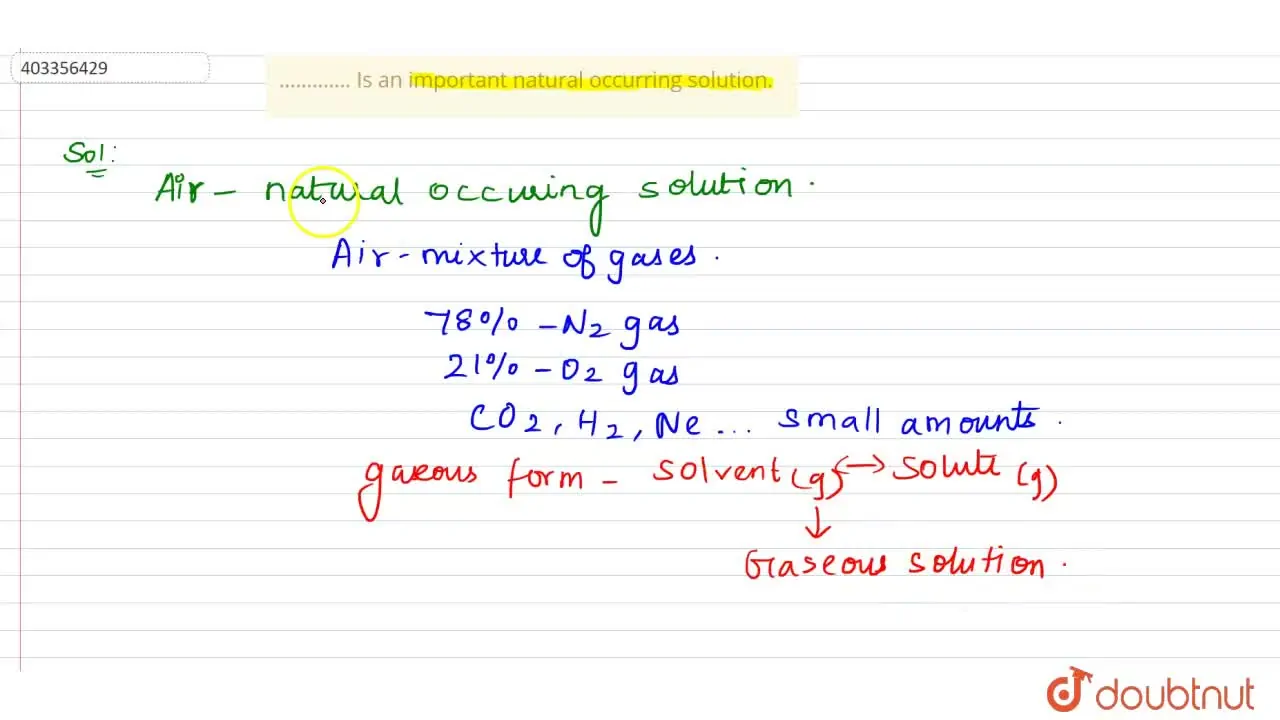 403356429
............. Is an important natural occurring solution.
Sol:
Air - natural occuring solution.
Air - mixture of gases.
78% - N2 gas
21% - O2 gas
CO2, H2, Ne ... small amounts.
gaseous form - solvent (g) ↔ solute (g)
↓
Gaseous solution.
doubtnut